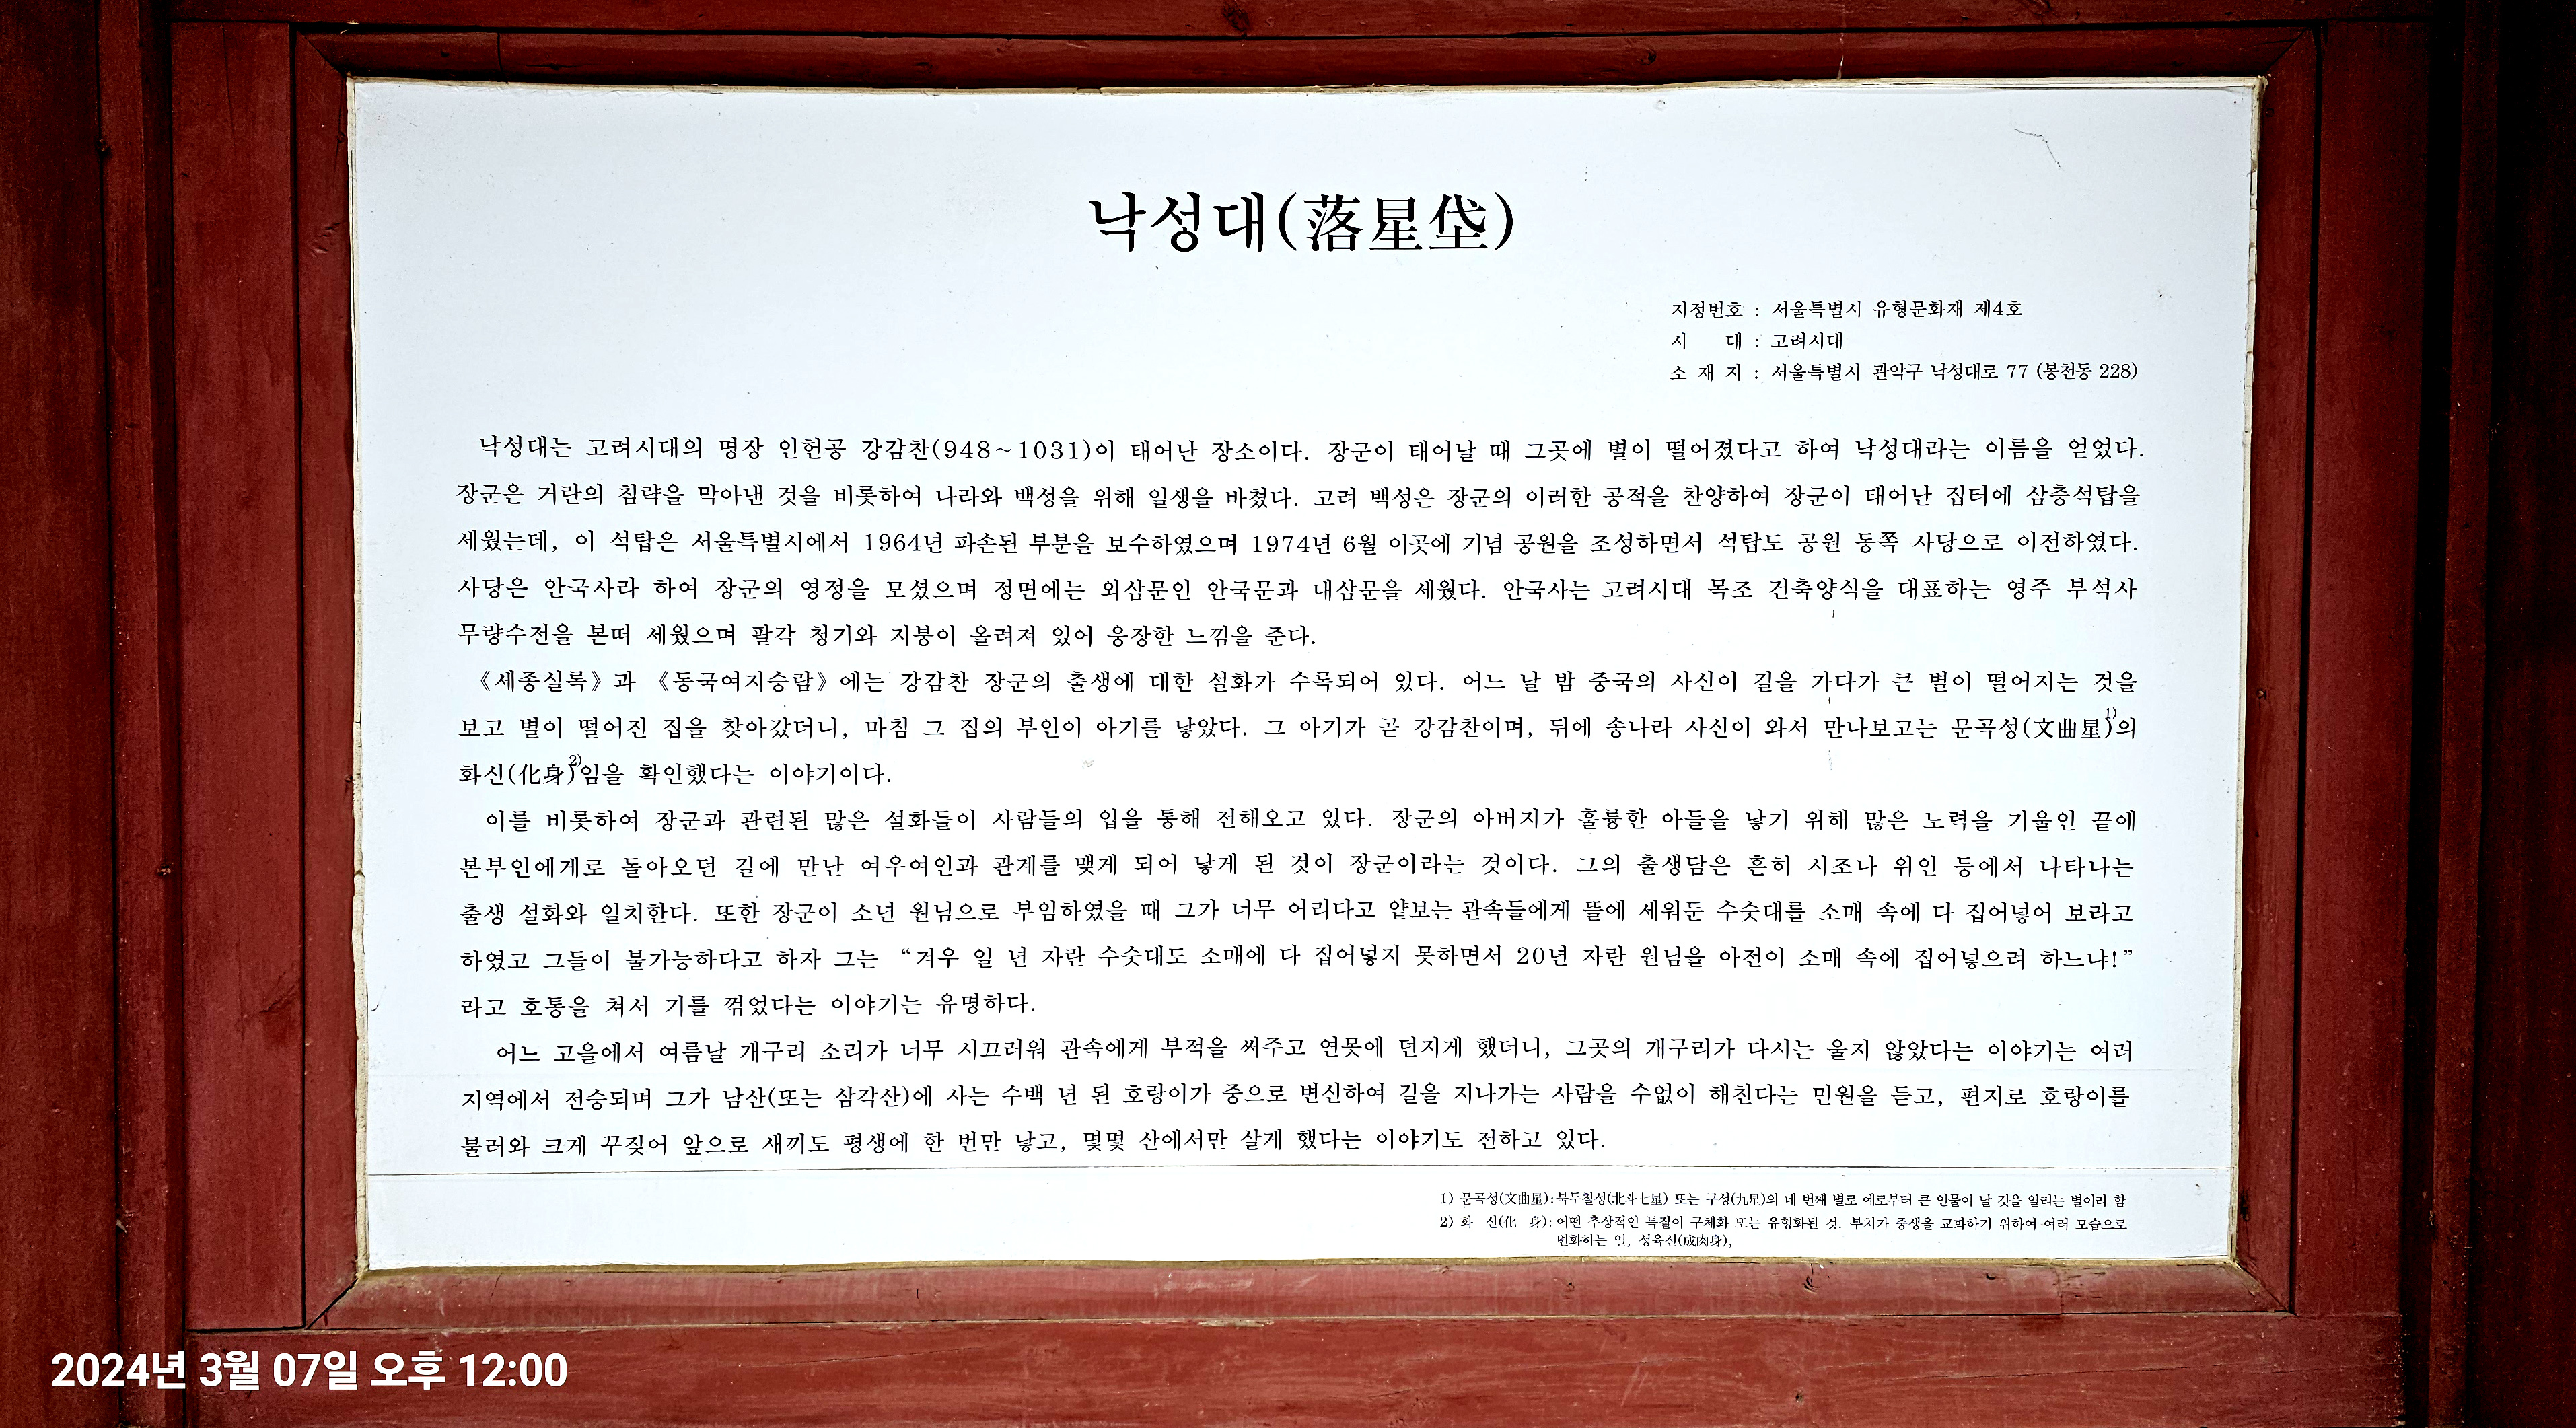 낙성대(落星垈)
지정번호 : 서울특별시 유형문화재 제4호
시 대 : 고려시대
소 재 지 : 서울특별시 관악구 낙성대로 77 (봉천동 228)
낙성대는 고려시대의 명장 인헌공 강감찬(948~1031)이 태어난 장소이다. 장군이 태어날 때 그곳에 별이 떨어졌다고 하여 낙성대라는 이름을 얻었다.
장군은 거란의 침략을 막아낸 것을 비롯하여 나라와 백성을 위해 일생을 바쳤다. 고려 백성은 장군의 이러한 공적을 찬양하여 장군이 태어난 집터에 삼층석탑을
세웠는데, 이 석탑은 서울특별시에서 1964년 파손된 부분을 보수하였으며 1974년 6월 이곳에 기념 공원을 조성하면서 석탑도 공원 동쪽 사당으로 이전하였다.
사당은 안국사라 하여 장군의 영정을 모셨으며 정면에는 외삼문인 안국문과 내삼문을 세웠다. 안국사는 고려시대 목조 건축양식을 대표하는 영주 부석사
무량수전을 본떠 세웠으며 팔각 청기와 지붕이 올려져 있어 웅장한 느낌을 준다.
《세종실록》과 《동국여지승람》에는 강감찬 장군의 출생에 대한 설화가 수록되어 있다. 어느 날 밤 중국의 사신이 길을 가다가 큰 별이 떨어지는 것을
보고 별이 떨어진 집을 찾아갔더니, 마침 그 집의 부인이 아기를 낳았다. 그 아기가 곧 강감찬이며, 뒤에 송나라 사신이 와서 만나보고는 문곡성(文曲星)1)의
화신(化身)2)임을 확인했다는 이야기이다.
이를 비롯하여 장군과 관련된 많은 설화들이 사람들의 입을 통해 전해오고 있다. 장군의 아버지가 훌륭한 아들을 낳기 위해 많은 노력을 기울인 끝에
본부인에게로 돌아오던 길에 만난 여우여인과 관계를 맺게 되어 낳게 된 것이 장군이라는 것이다. 그의 출생담은 흔히 시조나 위인 등에서 나타나는
출생 설화와 일치한다. 또한 장군이 소년 원님으로 부임하였을 때 그가 너무 어리다고 얕보는 관속들에게 뜰에 세워둔 수숫대를 소매 속에 다 집어넣어 보라고
하였고 그들이 불가능하다고 하자 그는 “겨우 일 년 자란 수숫대도 소매에 다 집어넣지 못하면서 20년 자란 원님을 아전이 소매 속에 집어넣으려 하느냐!”
라고 호통을 쳐서 기를 꺾었다는 이야기는 유명하다.
어느 고을에서 여름날 개구리 소리가 너무 시끄러워 관속에게 부적을 써주고 연못에 던지게 했더니, 그곳의 개구리가 다시는 울지 않았다는 이야기는 여러
지역에서 전승되며 그가 남산(또는 삼각산)에 사는 수백 년 된 호랑이가 중으로 변신하여 길을 지나가는 사람을 수없이 해친다는 민원을 듣고, 편지로 호랑이를
불러와 크게 꾸짖어 앞으로 새끼도 평생에 한 번만 낳고, 몇몇 산에서만 살게 했다는 이야기도 전하고 있다.
1) 문곡성(文曲星): 북두칠성(北斗七星) 또는 구성(九星)의 네 번째 별로 예로부터 큰 인물이 날 것을 알리는 별이라 함
2) 화 신(化 身): 어떤 추상적인 특질이 구체화 또는 유형화된 것. 부처가 중생을 교화하기 위하여 여러 모습으로
변화하는 일, 성육신(成肉身),
2024년 3월 07일 오후 12:00